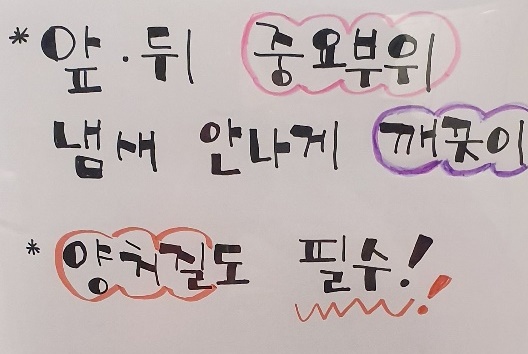 * 앞·뒤 중요부위
냄새 안나게 깨끗이
* 양치질도 필수!!